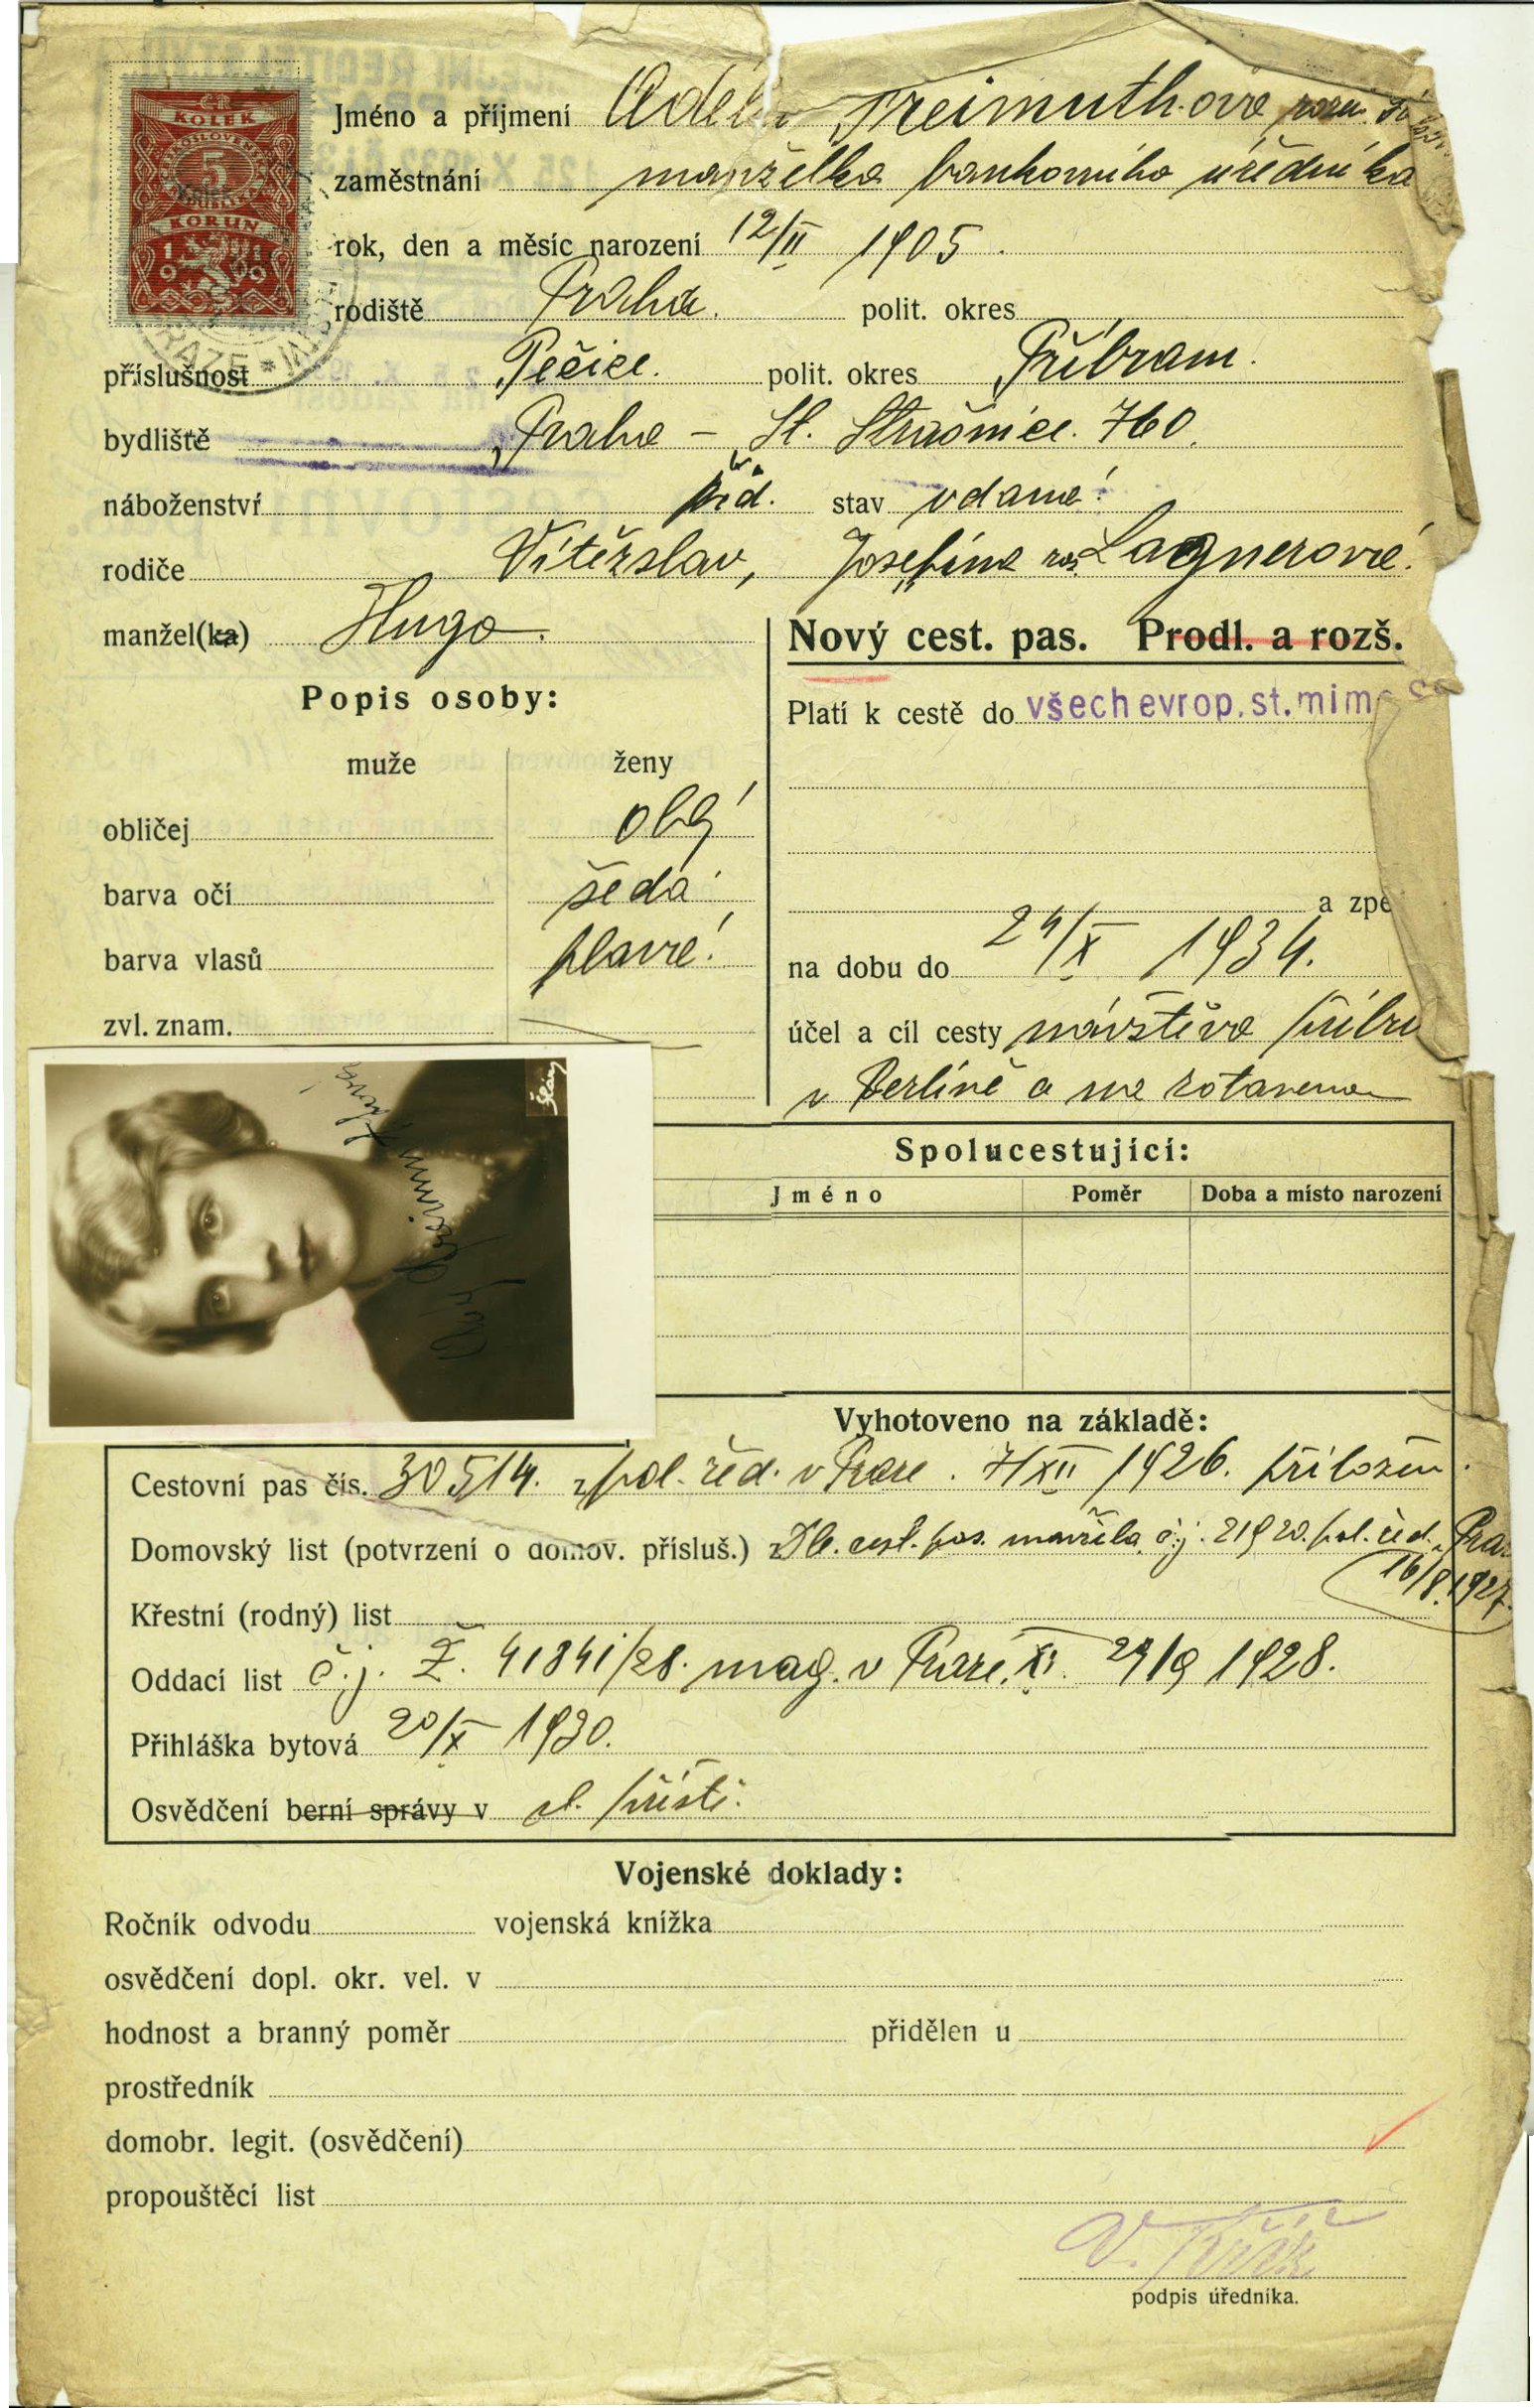 ČR
KOLEK
ČESKOSLOVENSKÁ
5
KORUN
1919
Jméno a příjmení Adéla Freimuthová rozen.
zaměstnání manželka bankovního úředníka
rok, den a měsíc narození 12/II 1905.
rodiště Praha. polit. okres
příslušnost Pečice. polit. okres Příbram.
bydliště Praha – St. Strašnice. 760.
náboženství žid. stav vdaná
rodiče Vítězslav, Josefina roz. Lagnerová.
manžel(ka) Hugo.
Nový cest. pas. Prodl. a rozš.
Popis osoby:
Platí k cestě do všech evrop. st. mim
muže ženy
obličej obl.
barva očí šedá
barva vlasů plavé
zvl. znam.
a zpě
na dobu do 24/X 1934.
účel a cíl cesty návštěva příbu
v Berlíně a na zotavenou
Spolucestující:
Jméno Poměr Doba a místo narození
Vyhotoveno na základě:
Cestovní pas čís. 30514. z pol. řed. v Praze. 7/XII 1926. přiložen.
Domovský list (potvrzení o domov. přísluš.) Dle cest. pas. manžela č.j. 21920. pol. řed. v Praz
16/8.1927.
Křestní (rodný) list
Oddací list č.j. Ž. 41841/28. mag. v Praze. XI. 27/9 1928.
Přihláška bytová 20/X 1930.
Osvědčení berní správy v
Vojenské doklady:
Ročník odvodu vojenská knížka
osvědčení dopl. okr. vel. v
hodnost a branný poměr přidělen u
prostředník
domobr. legit. (osvědčení)
propouštěcí list
podpis úředníka.